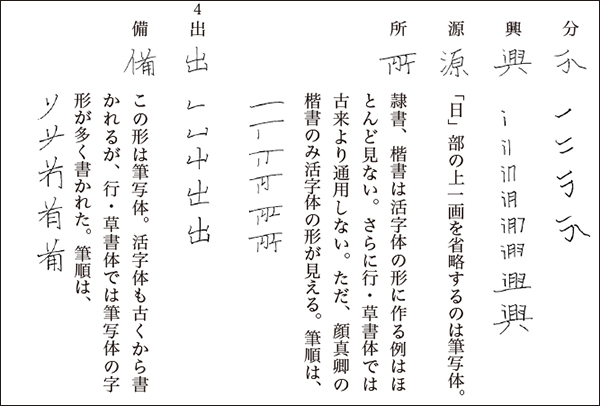 分 分
興 興
源 源 「日」部の上一画を省略するのは筆写体。
所 所 隷書、楷書は活字体の形に作る例はほ
とんど見ない。さらに行・草書体では
古来より通用しない。ただ、顔真卿の
楷書のみ活字体の形が見える。筆順は、
4 出 出
備 備 この形は筆写体。活字体も古くから書
かれるが、行・草書体では筆写体の字
形が多く書かれた。筆順は、